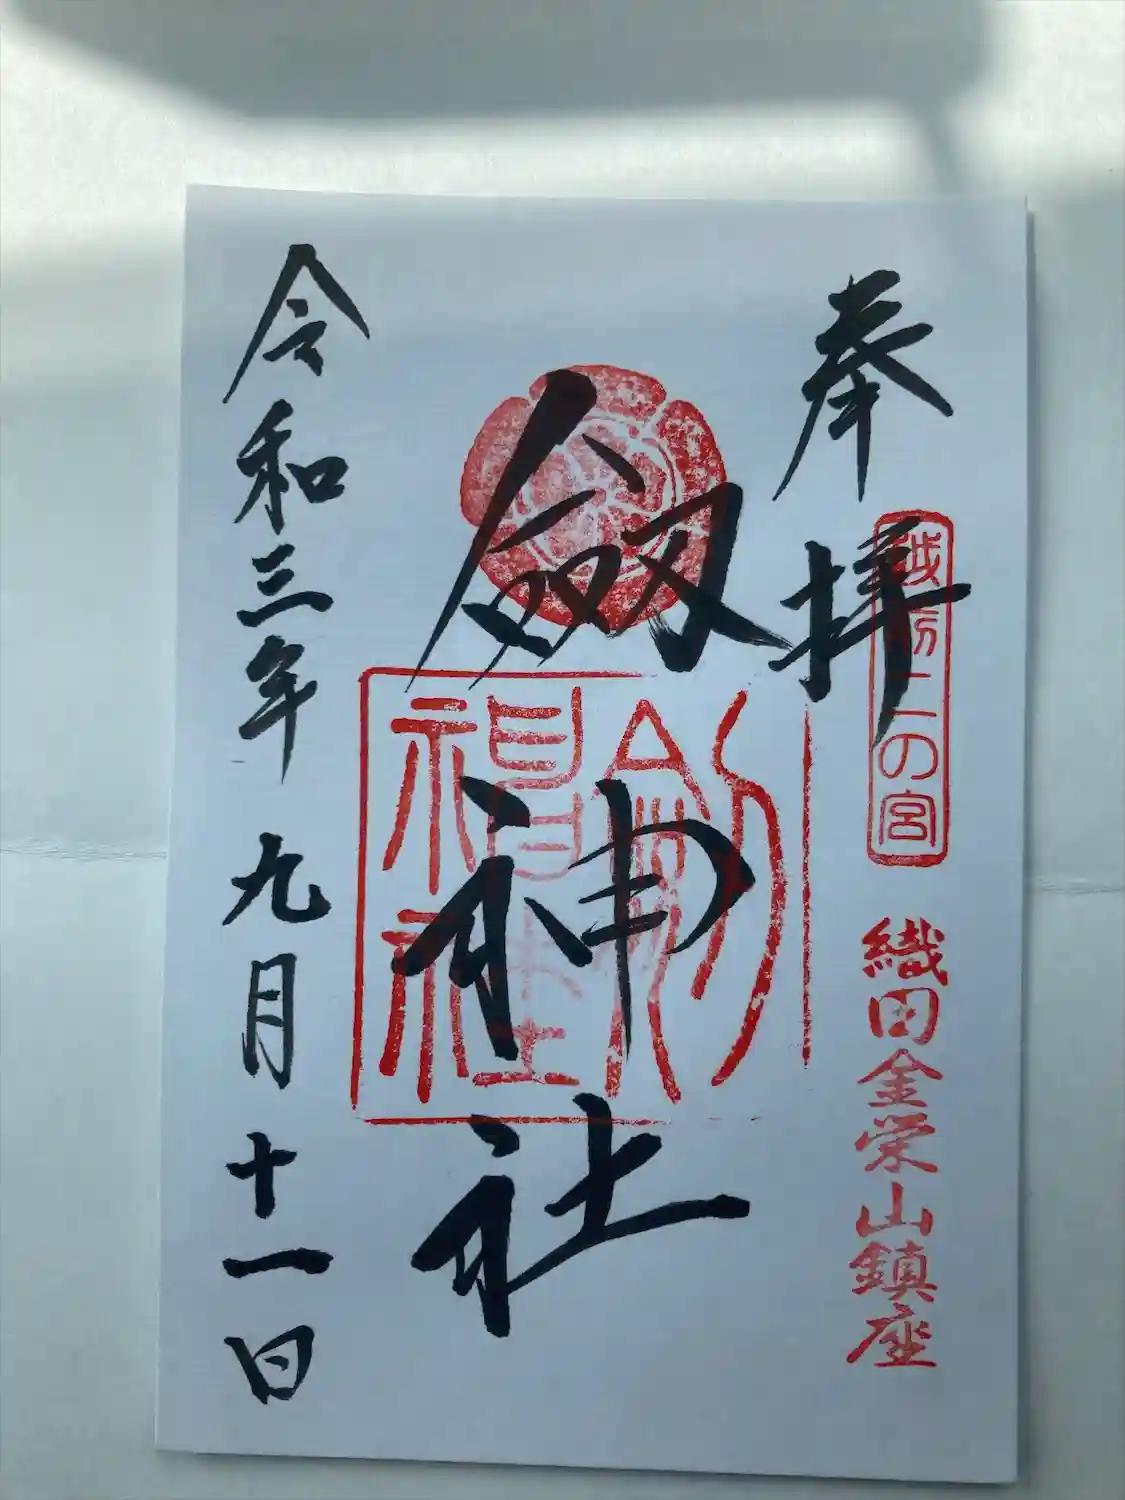 奉拝
越前二の宮
織田金栄山鎮座
劔神社
劔神社
令和三年九月十一日